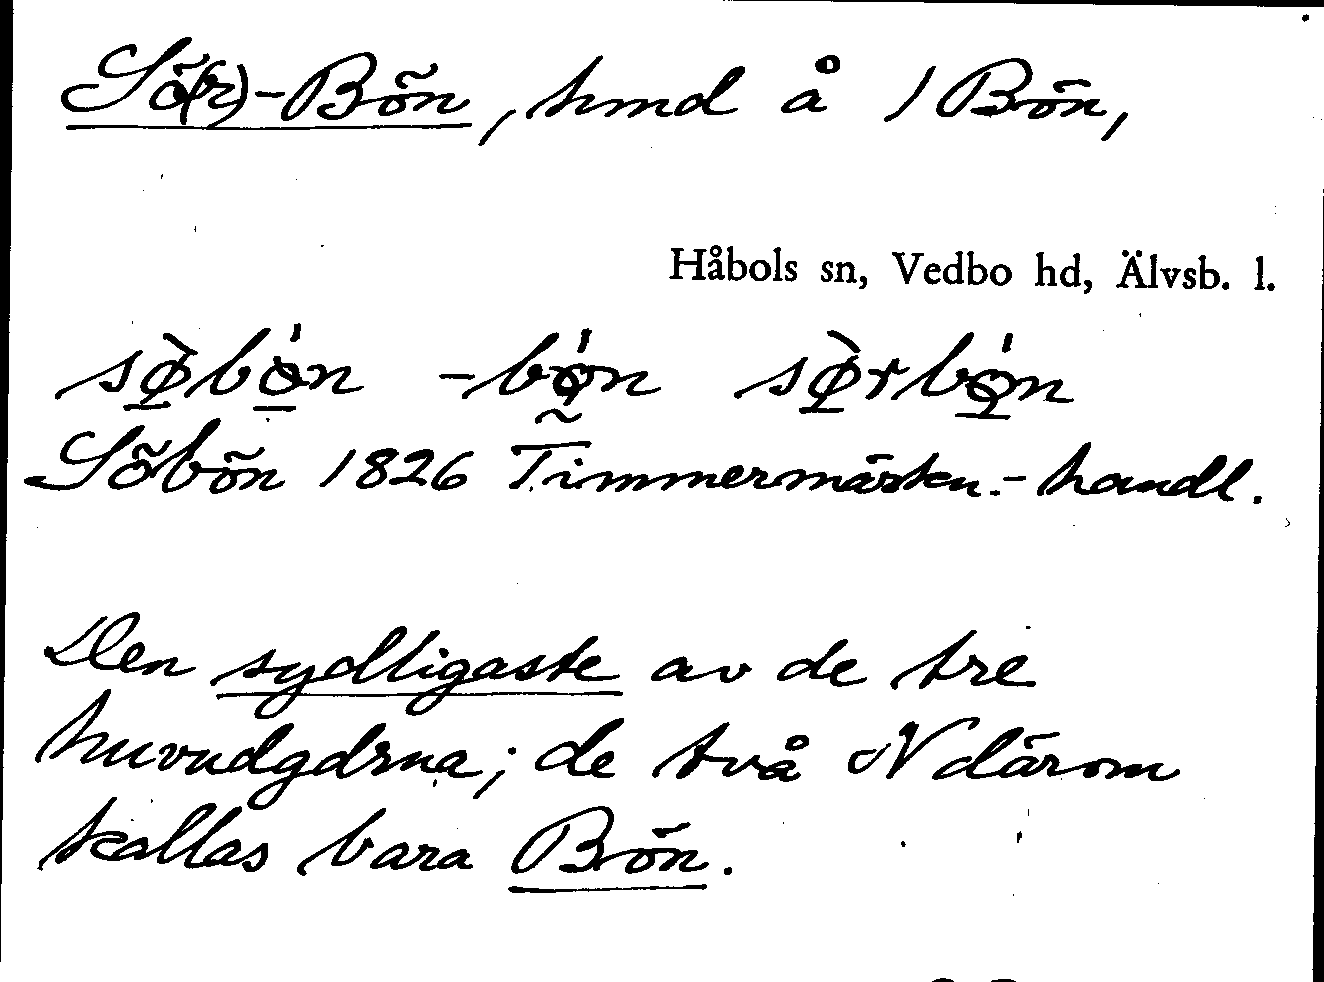 Sö(r)-Bön, hmd å 1 Bön,
Håbols sn, Vedbo hd, Älvsb. l.
Söbön 1826 Timmermärkn.-handl.
Den sydligaste av de tre
huvudgdrna; de två N därom
kallas bara Bön.